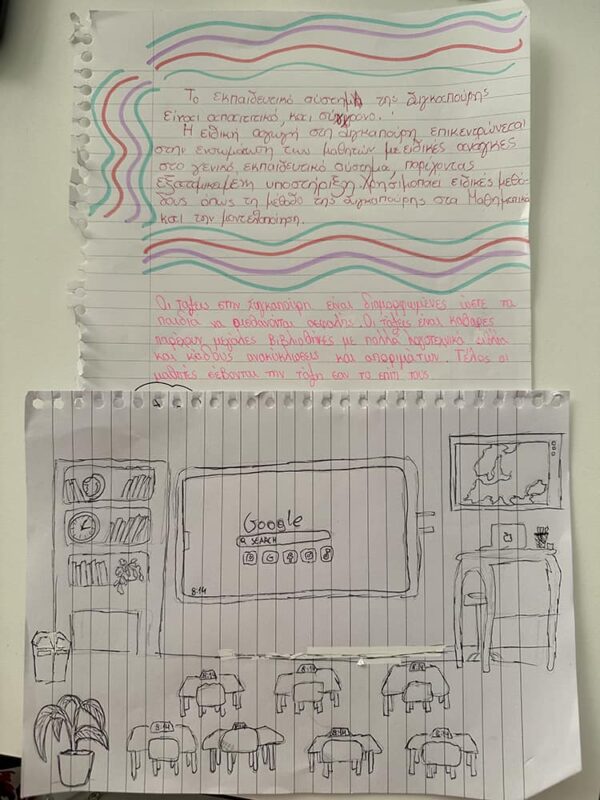 Το εκπαιδευτικό σύστημα της Σιγκαπούρης
είναι απαιτητικό, και σύγχρονο.
Η ειδική αγωγή στη Σιγκαπούρη επικεντρώνεται
στην ενσωμάτωση των μαθητών με ειδικές ανάγκες
στο γενικό εκπαιδευτικό σύστημα, παρέχοντας
εξατομικευμένη υποστήριξη. Χρησιμοποιεί ειδικές μεθό-
δους όπως τη μέθοδο της Σιγκαπούρης στα Μαθηματικά
και την μοντελοποίηση.
Οι τάξεις στην Σιγκαπούρη είναι διαμορφωμένες ώστε τα
παιδιά να αισθάνονται ασφαλής. Οι τάξεις είναι καθαρές
παρέχουν μεγάλες βιβλιοθήκες με πολλά λογοτεχνικά βιβλία
και κάδους ανακύκλωσεις και απορριμάτων. Τέλος οι
μαθητές σέβονται την τάξη σαν το σπίτι τους
Google
SEARCH
8:14